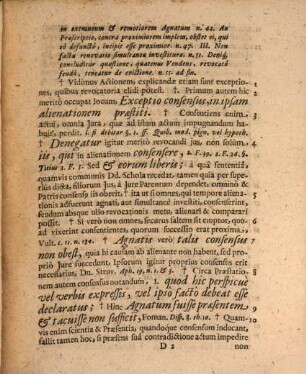 in extraneum & remotiorem Agnatum n. 42. An
Præscriptio, contra proximiorem implem, obstet ei, qui
eô defunctô, incipit esse proximior. n. 47. III. Non
facta revocatio simultaneæ investitura. n. 51. Deniq;
concluditur quæstione, quatenus Vendens, revocatô
feudô, teneatur de evictione. n. 55. ad fin.
† Vidimus Actionem, explicandæ etiam sunt exceptio- 1
nes, quibus revocatoria elidi potest. † Primum autem hîc 2
meritò occupat locum Exceptio consensus, in ipsam
alienationem præstiti. † Consentiens enim 3
actui, omnia Jura, quæ ad illum actum impugnandum ha-
buit, perdit. l. si debitor §. 1. ff. Quib. mod. pign. vel hypoth.
† Denegatur igitur meritò revocandi jus, non solùm 4
iis, qui in alienationem consensêre, 2. F. 39. 2. F. 26. §.
Titius 1. F. 7. Sed & eorum liberis; à quâ sententiâ
quamvis communis Dd. Schola recedat, tamen quia per su-
periùs dicta, filiorum Jus, à jure Parentum dependet, omninò &
Patris consensus iis oberit. † ita ut si omnes, qui tempore aliena-
tionis adfuerunt agnati, aut simultaneè investiti, consenserint,
sendum absque ullo revocationis metu, alienari & comparari
possit. † Si verò non omnes, securus saltim sit emptor, quo-
ad vixerint consentientes, quorum successio erat proxima,
Vult. c. 11. n. 134. † Agnatis verò talis consensus
non obest, quia hi causam ab alienante non habent, sed pro-
priò Jure succedunt. Unde igitur proprius consensus erit
necessarius, Dn. Struv. Aph. 19. n. 6. & 3. † Circa Præstatio-
nem autem consensus notandum, 1. quod hic perspicuè
vel verbis expressis, vel ipso facto debeat esse
declaratus; † Hinc Agnatum fuisse præsentem,
& tacuisse non sufficit, Foman. Disp. 8. th. 10. † Quam-
vis enim scientia & Præsentia, quandoque consensum inducant,
fallit tamen hoc, si præsens suâ contradictione actum impedire
D 2 non